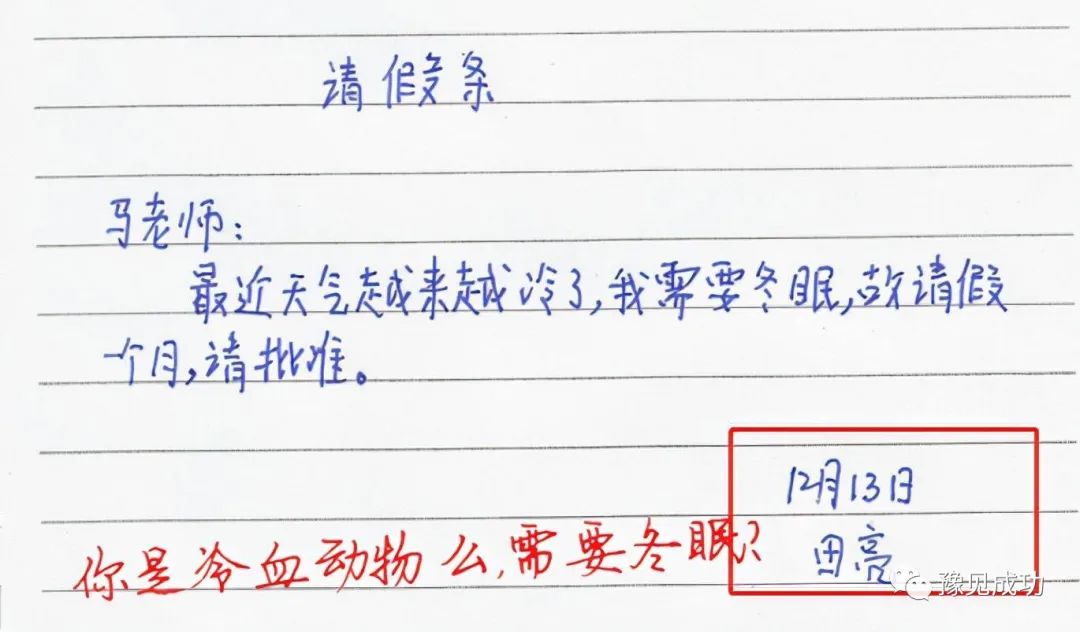 请假条
马老师：
最近天气越来越冷了，我需要冬眠，故请假
一个月，请批准。
12月13日
田亮
你是冷血动物么，需要冬眠？
豫见成功